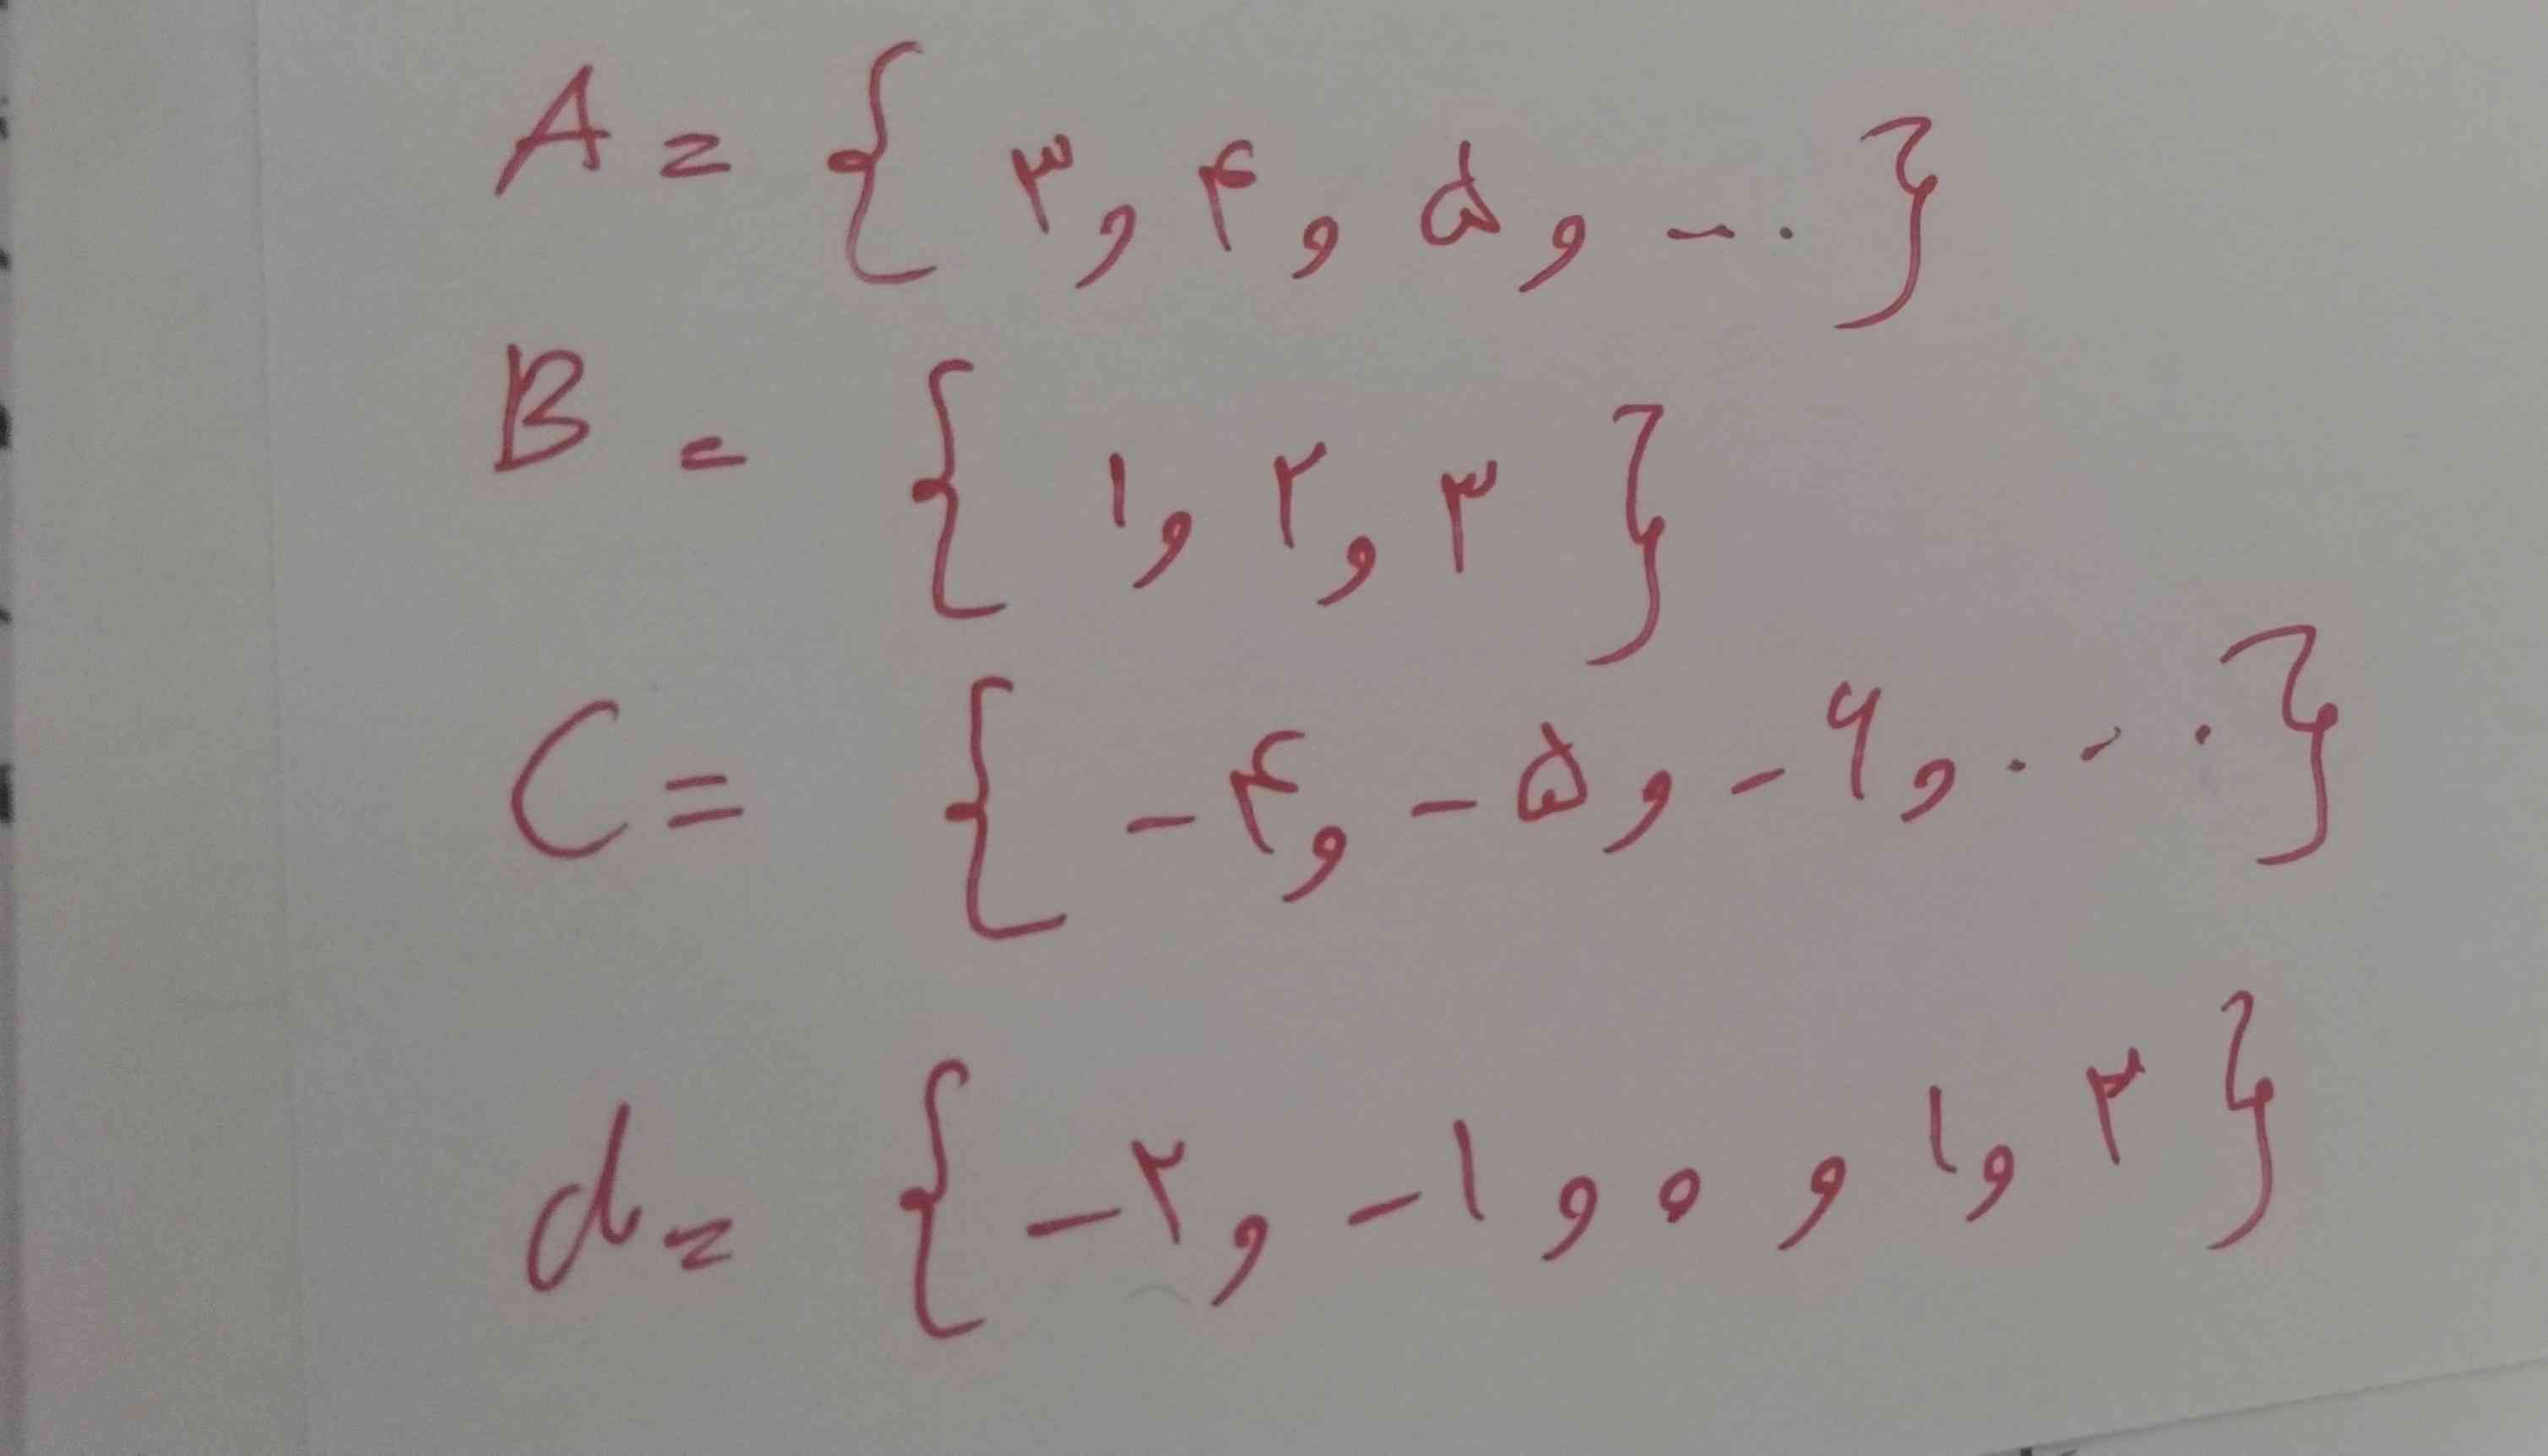 A = { ۳ , ۴ , ۵ , ... }
B = { ۱ , ۲ , ۳ }
C = { -۴ , -۵ , -۶ , ... }
d = { -۲ , -۱ , ۰ , ۱ , ۳ }